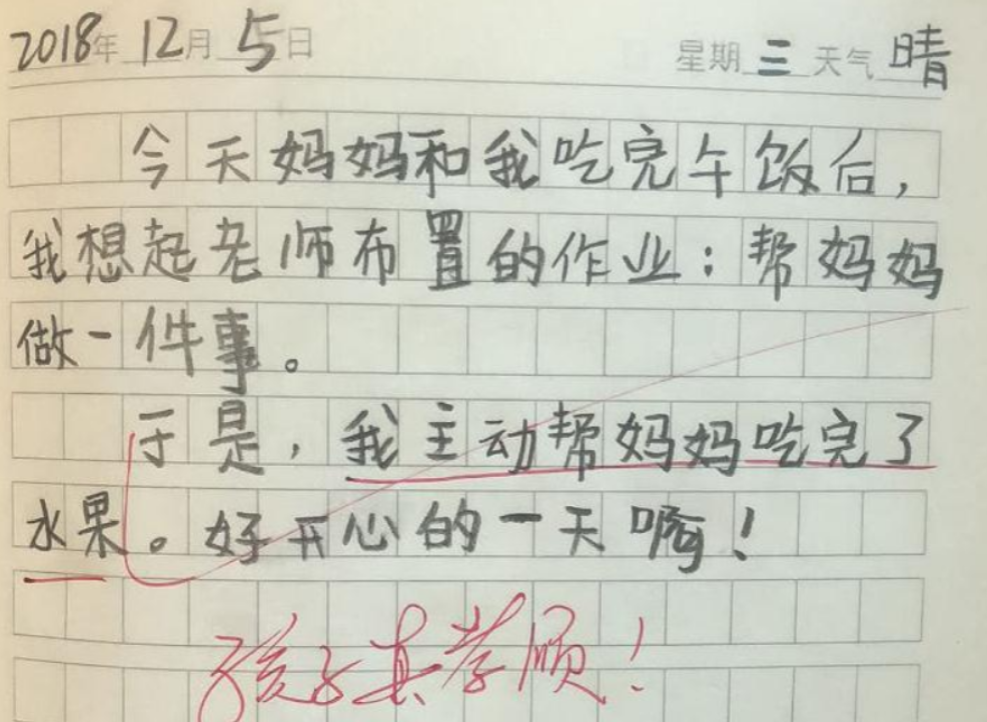 2018年 12月 5日 星期三 天气 晴
今天妈妈和我吃完午饭后，
我想起老师布置的作业：帮妈妈
做一件事。
于是，我主动帮妈妈吃完了
水果。好开心的一天啊！
孩子真孝顺！